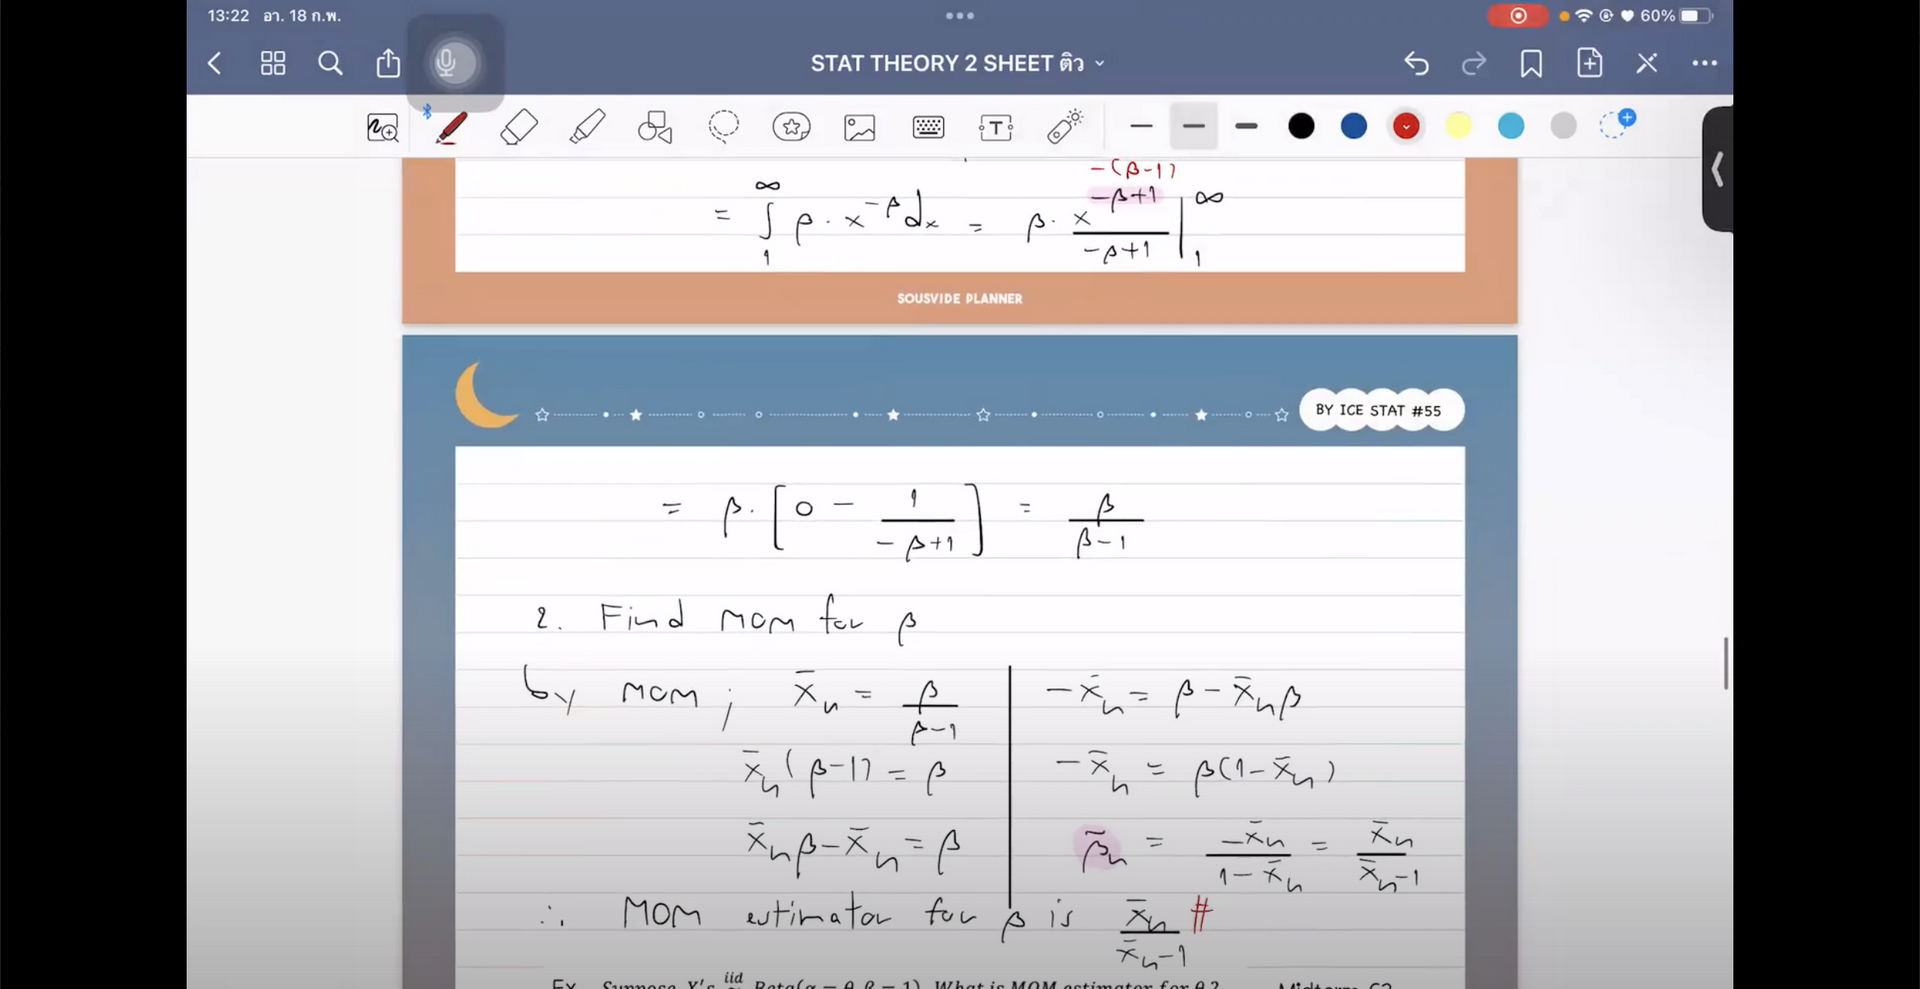 13:22 อา. 18 ก.พ. 60%
STAT THEORY 2 SHEET ติว
T
-(β-1)
= ∫₁^∞ β · x^{-β} dx = β · x^{-β+1}/(-β+1) |₁^∞
SOUSVIDE PLANNER
BY ICE STAT #55
= β · [0 - 1/(-β+1)] = β/(β-1)
2. Find MOM for β
by MOM ; x̄ₙ = β/(β-1)
x̄ₙ(β-1) = β
x̄ₙβ - x̄ₙ = β
-x̄ₙ = β - x̄ₙβ
-x̄ₙ = β(1-x̄ₙ)
β̃ₙ = -x̄ₙ/(1-x̄ₙ) = x̄ₙ/(x̄ₙ-1)
∴ MOM estimator for β is x̄ₙ/(x̄ₙ-1) #
Ex. Suppose X's iid Beta(α = θ, β = 1). What is MOM estimator for θ ?